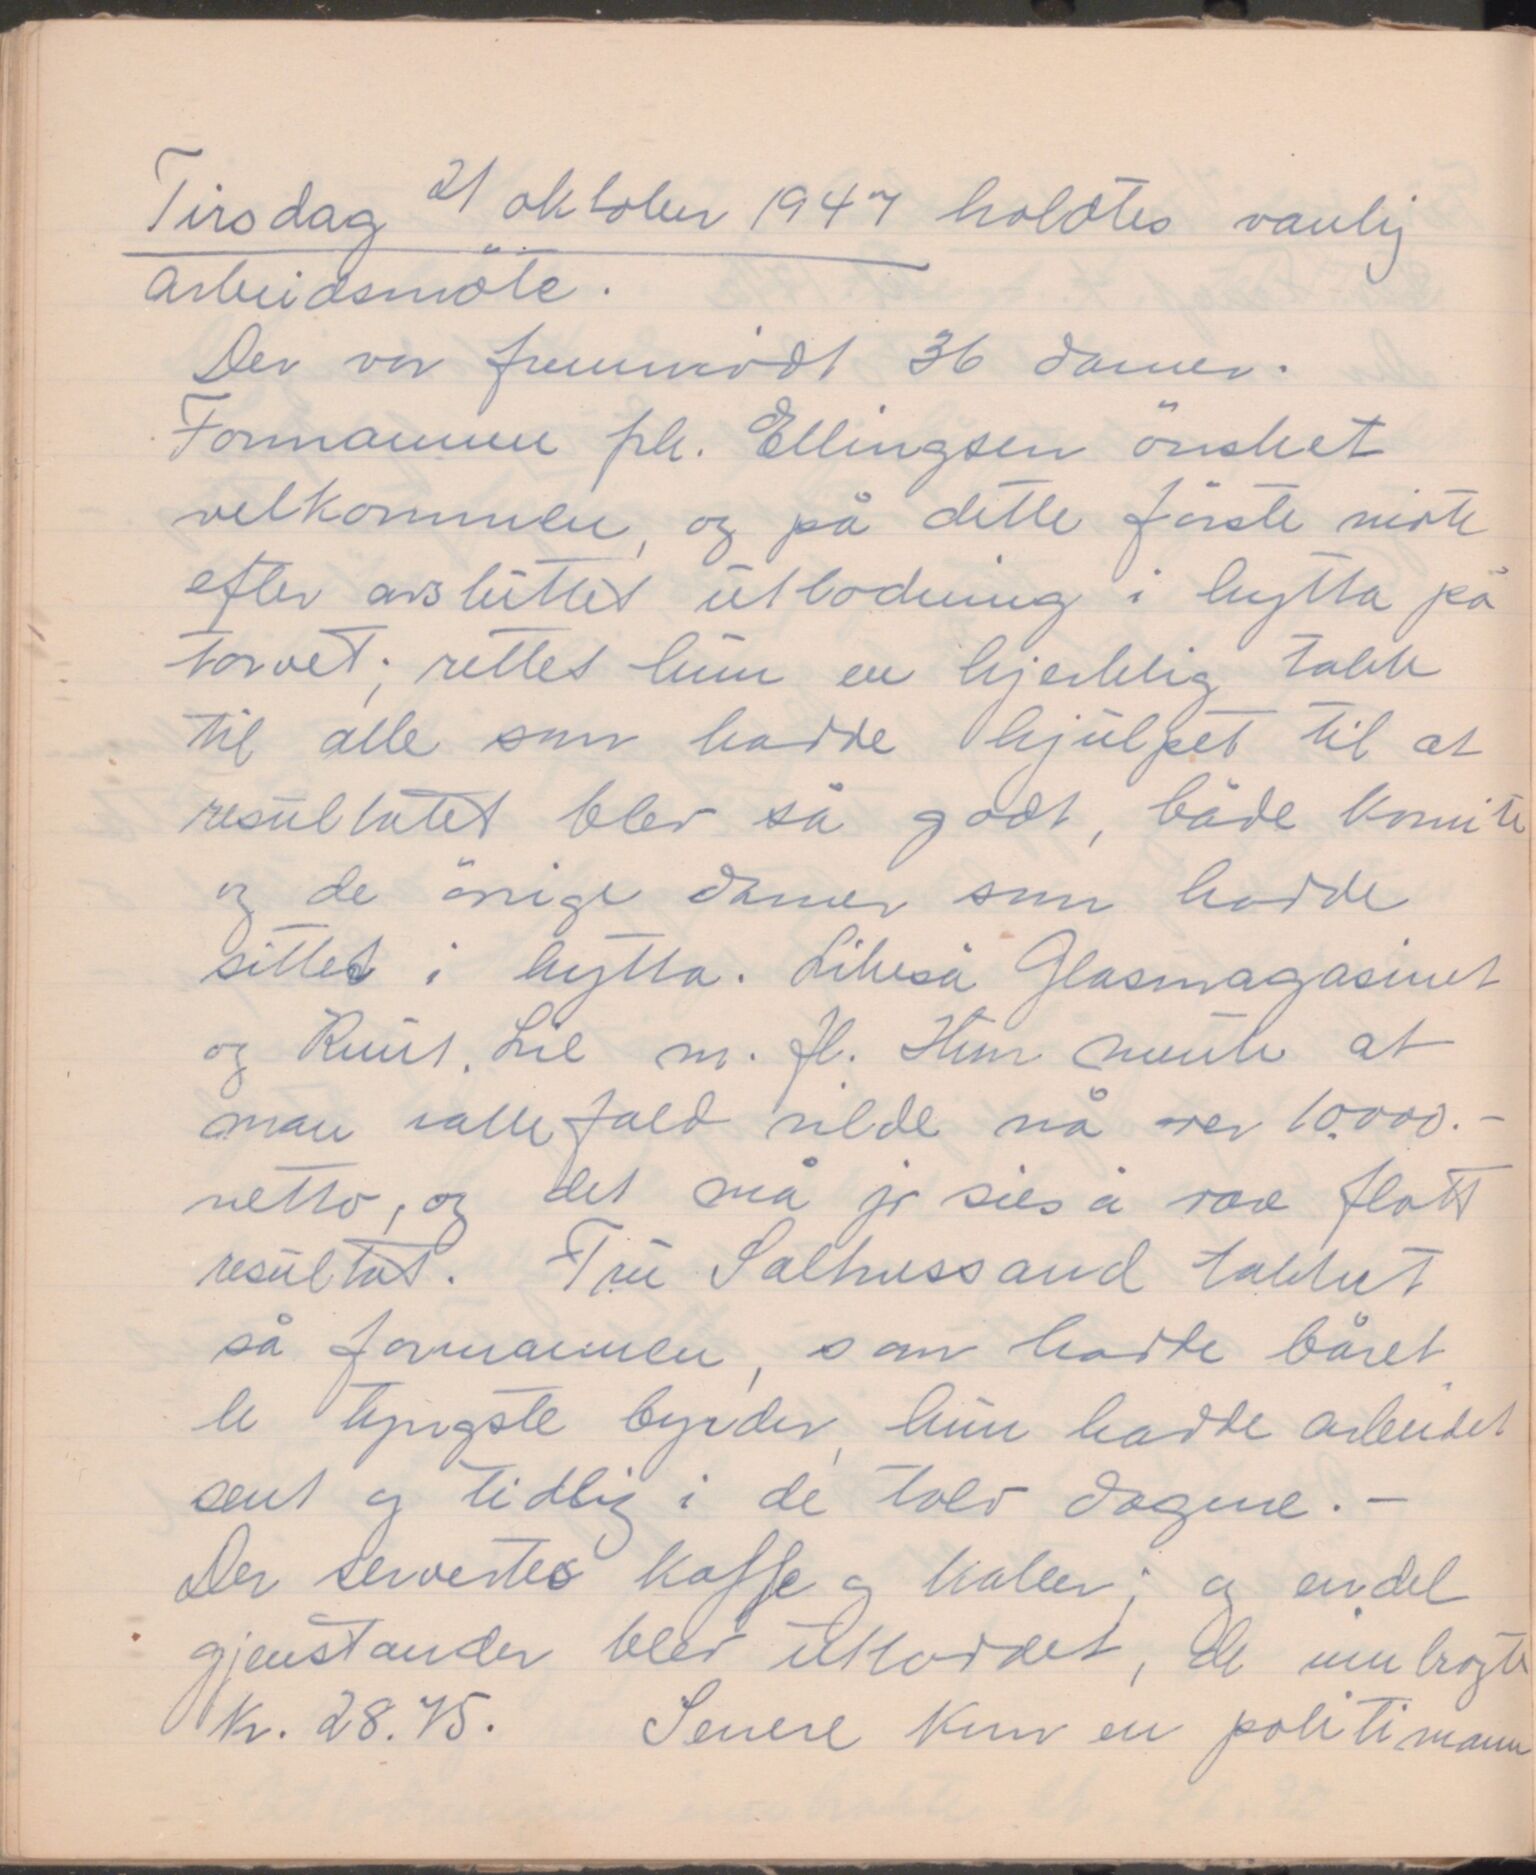 Tirsdag 21 oktober 1947 holdtes vanlig
arbeidsmöte.
Der var fremmödt 36 damer.
Formannen frk. Ellingsen önsket
velkommen, og på dette förste möte
efter avsluttet utlodning i hytta på
torvet; rettet hun en hjertelig takk
til alle som hadde hjulpet til at
resultatet blev så godt, både komite
og de övrige damer som hadde
sittet i hytta. Likeså Glasmagasinet
og m. fl. Hun mente at
man iallefald vilde nå over 10.000.-
netto, og det må jo sies å være flott
resultat. Fru Salhussand takket
så formannen, som hadde båret
de tyngste byrder, hun hadde arbeidet
sent og tidlig i de tolv dagene. -
Der servertes kaffe og kaker; og endel
gjenstander blev utloddet, de innbragte
Kr. 28.75. Senere kom en politimann